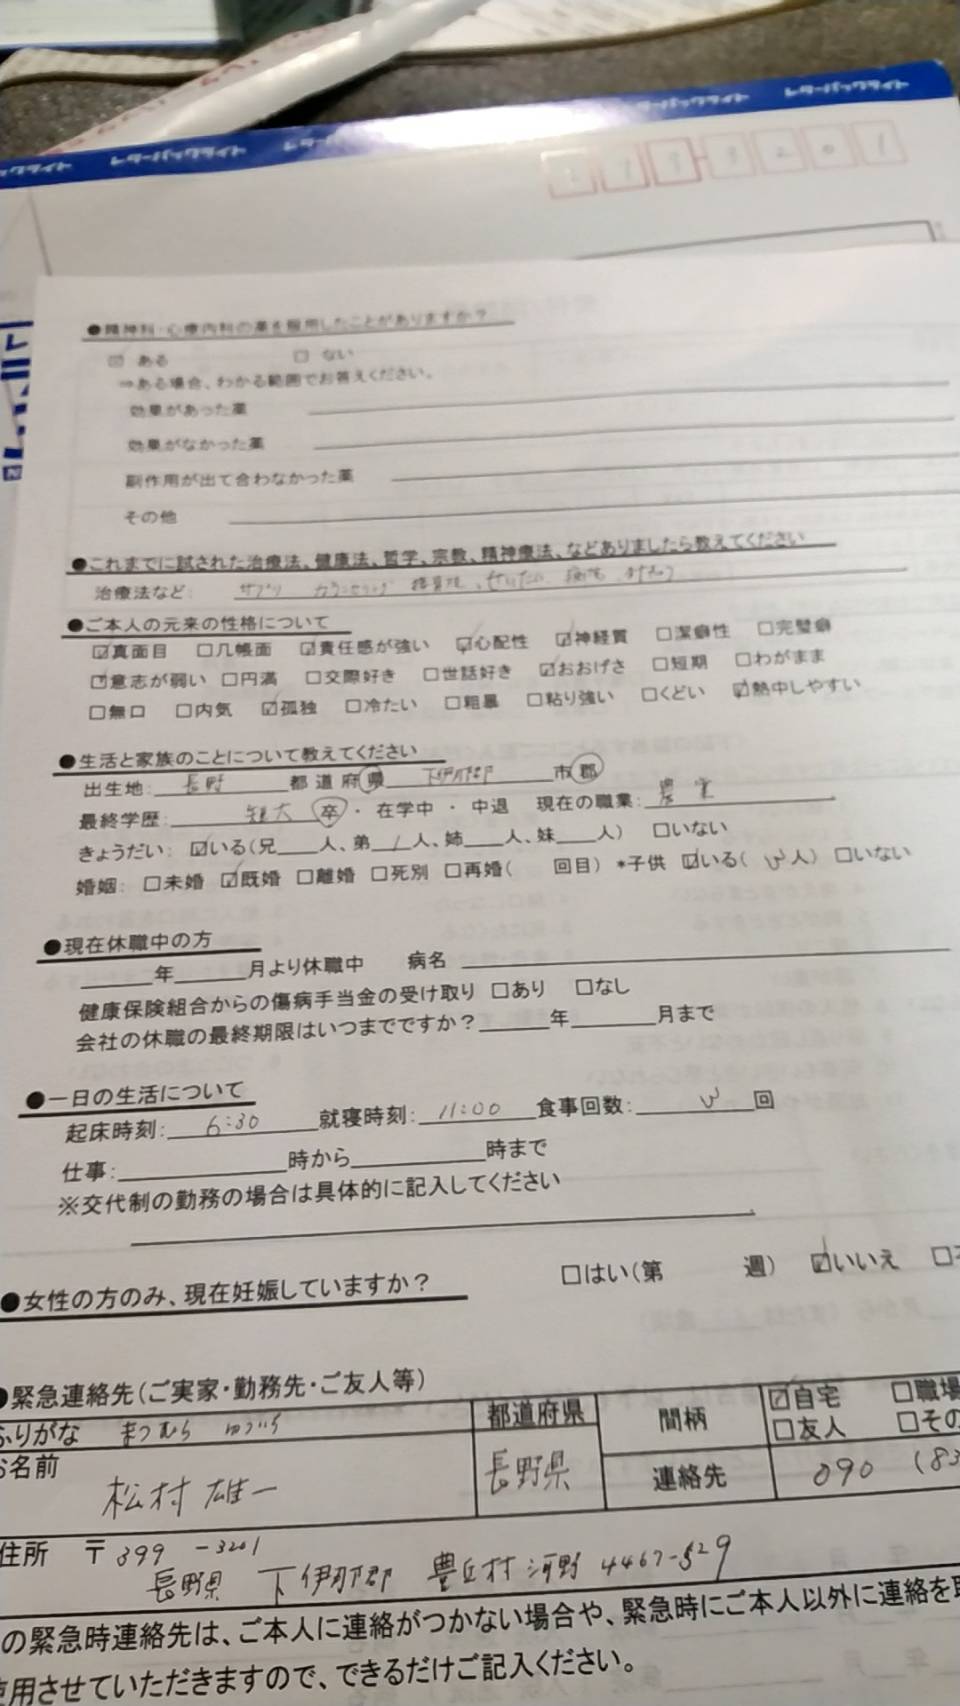 レターパックライト レターパックライト
●精神科・心療内科の薬を服用したことがありますか？
☑ ある □ ない
⇒ある場合、わかる範囲でお答えください。
効果があった薬
効果がなかった薬
副作用が出て合わなかった薬
その他
●これまでに試された治療法、健康法、哲学、宗教、精神療法、などありましたら教えてください
治療法など： サプリ カウンセリング
●ご本人の元来の性格について
☑真面目 □几帳面 ☑責任感が強い ☑心配性 ☑神経質 □潔癖性 □完璧癖
☑意志が弱い □円満 □交際好き □世話好き ☑おおげさ □短期 □わがまま
□無口 □内気 ☑孤独 □冷たい □粗暴 □粘り強い □くどい ☑熱中しやすい
●生活と家族のことについて教えてください
出生地： 長野 都道府県 下伊那郡 市郡
最終学歴： 短大 卒・在学中・中退 現在の職業： 農業
きょうだい： ☑いる（兄＿＿人、弟 1 人、姉＿＿人、妹＿＿人） □いない
婚姻： □未婚 ☑既婚 □離婚 □死別 □再婚（ 回目） *子供 ☑いる（ 3 人） □いない
●現在休職中の方
＿＿年＿＿月より休職中 病名
健康保険組合からの傷病手当金の受け取り □あり □なし
会社の休職の最終期限はいつまでですか？＿＿年＿＿月まで
●一日の生活について
起床時刻： 6:30 就寝時刻： 11:00 食事回数： 3 回
仕事：＿＿時から＿＿時まで
※交代制の勤務の場合は具体的に記入してください
●女性の方のみ、現在妊娠していますか？ □はい（第 週） ☑いいえ □
●緊急連絡先（ご実家・勤務先・ご友人等）
ふりがな まつむら ゆういち 都道府県 間柄 ☑自宅 □職場
□友人 □その
お名前 松村 雄一 長野県 連絡先 090 (83
住所 〒399-3201
長野県 下伊那郡 豊丘村 河野 4467-529
の緊急時連絡先は、ご本人に連絡がつかない場合や、緊急時にご本人以外に連絡を取
使用させていただきますので、できるだけご記入ください。